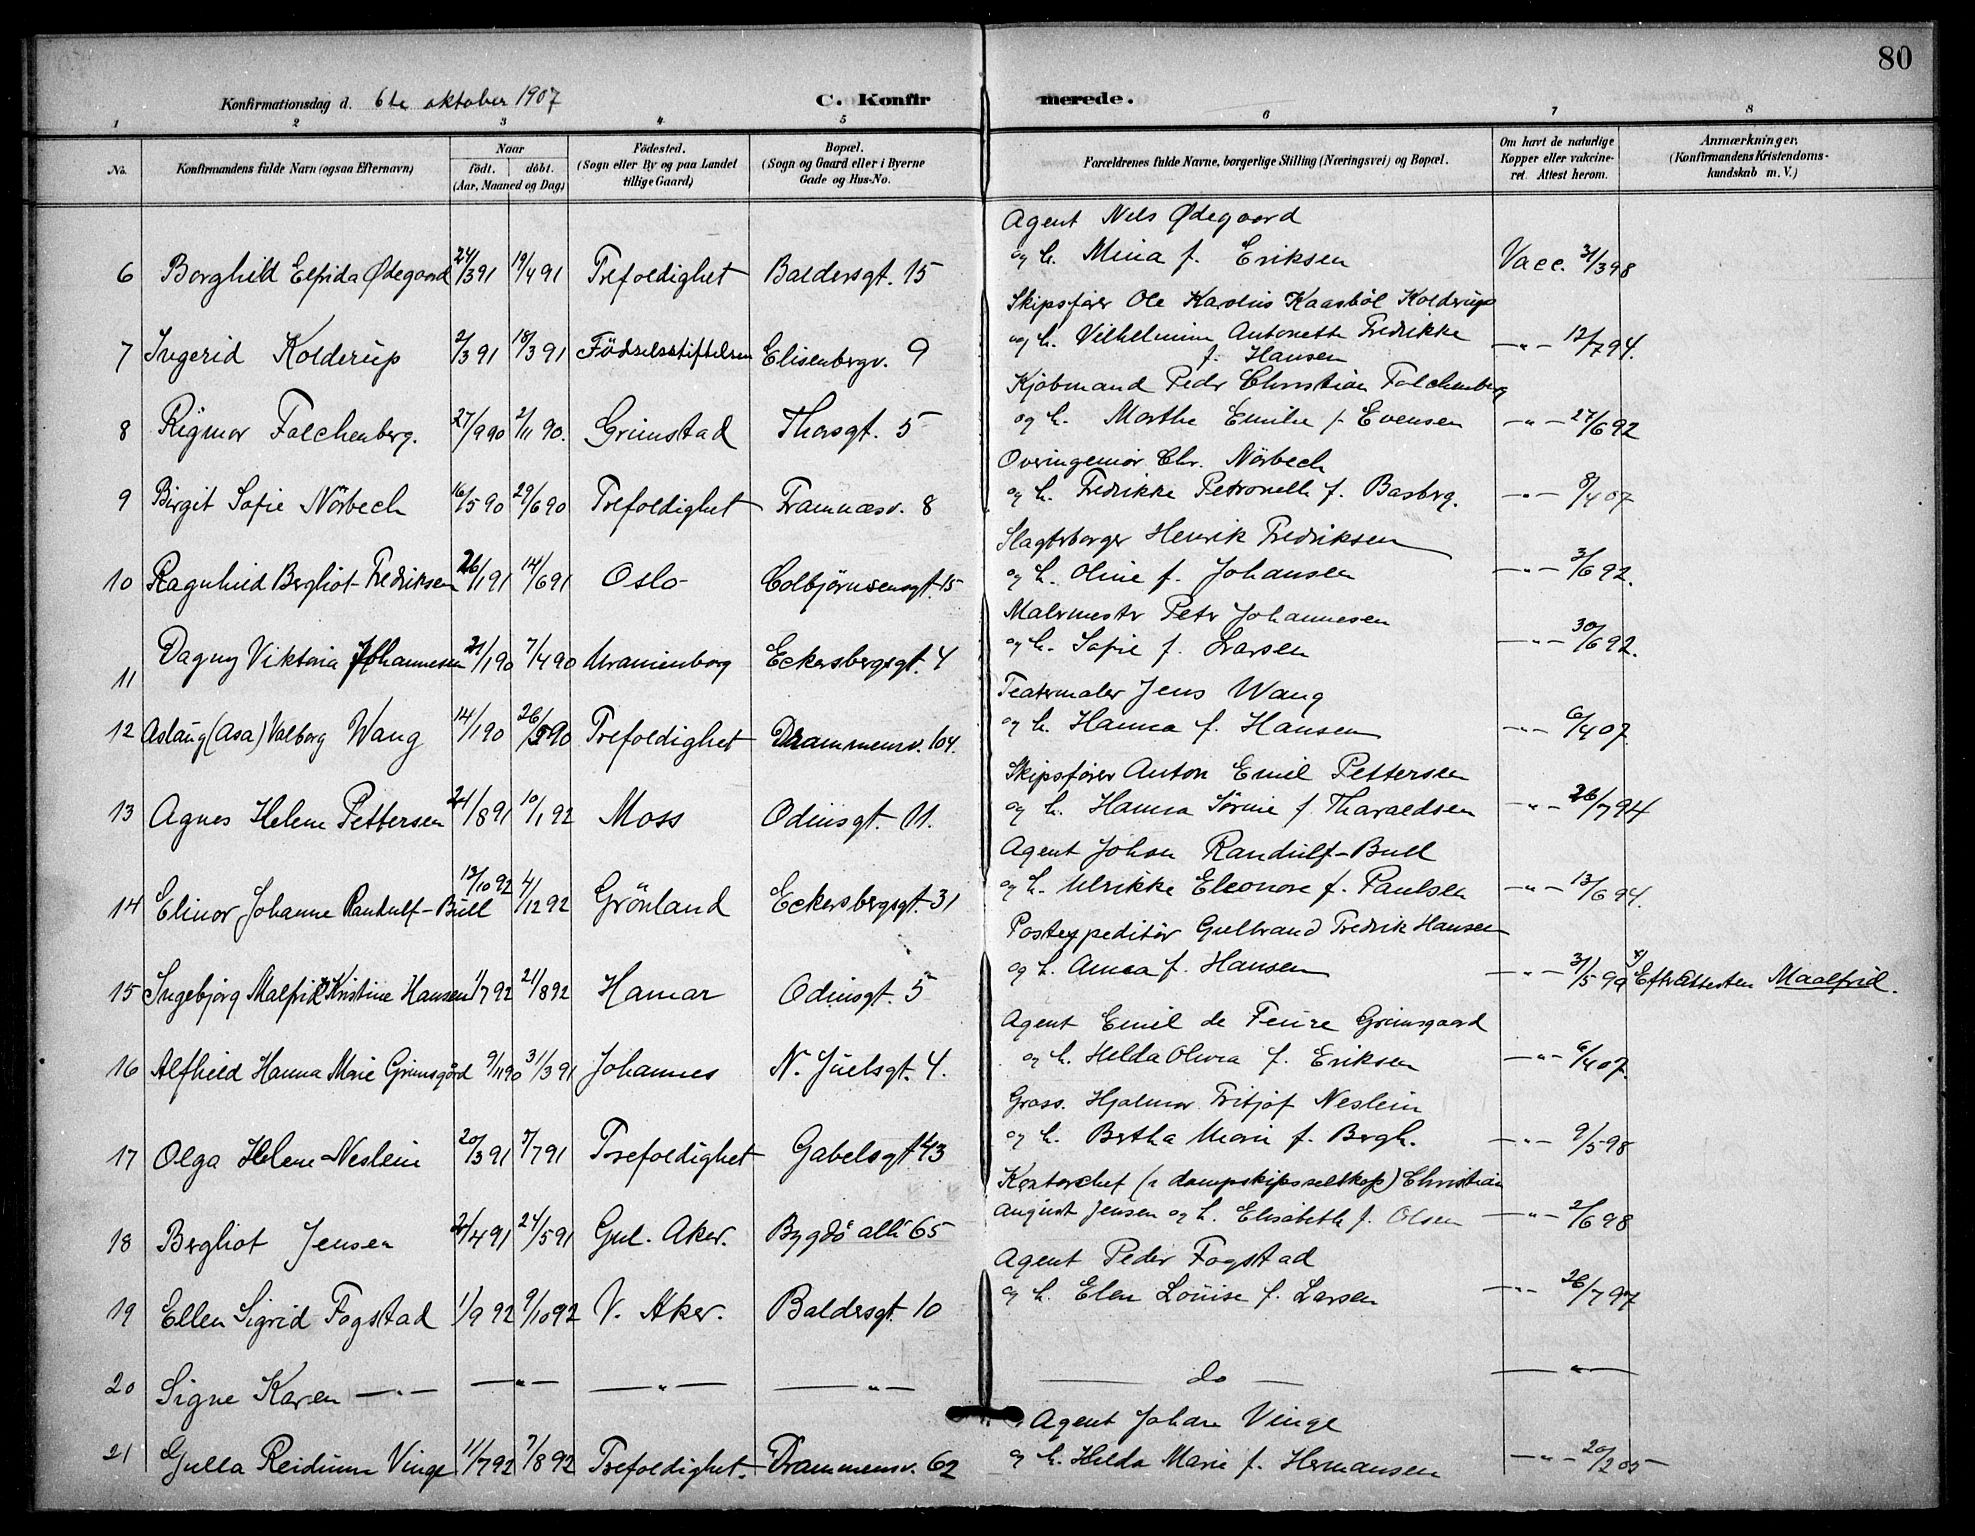 80
Konfirmationsdag d. 6te oktober 1907 C. Konfirmerede.
1 2 3 4 5 6 7 8
No. Konfirmandens fulde Navn (ogsaa Efternavn) Naar födt. döbt. (Aar, Maaned og Dag) Födested. (Sogn eller By og paa Landet tillige Gaard) Bopæl. (Sogn og Gaard eller i Byerne Gade og Hus-No. Forældrenes fulde Navne, borgerlige Stilling (Næringsvei) og Bopæl. Om havt de naturlige Kopper eller vakcineret. Attest herom. Anmærkninger. (Konfirmandens Kristendomskundskab m. V.)
Agent Nils Ødegaard
6 Borghild Elfrida Ødegaard 24/3 91 19/4 91 Trefoldighet Baldersgt. 15 og h. Mina f. Eriksen Vacc. 31/3 98
Skipsfører Ole Karelius Kaasböl Kolderup
7 Ingerid Kolderup 2/3 91 18/3 91 Födselsstiftelsen Elisenbergv. 9 og h. Vilhelmine Antonette Fredrikke f. Hansen -"- 12/7 94.
Kjöbmand Peder Christian Falchenberg
8 Rigmor Falchenberg. 27/9 90 2/11 90. Grimstad Thorsgt. 5 og h. Marthe Emilie f. Evensen -"- 27/6 92
Overingeniör Chr. Nörbech
9 Birgit Sofie Nörbech 16/5 90 29/6 90 Trefoldighet Framnæsv. 8 og h. Fredrikke Petronelle f. Basberg. -"- 8/4 07
Slagterborger Henrik Fredriksen
10 Ragnhild Bergliot Fredriksen 26/1 91 14/6 91 Oslo Colbjørnsensgt. 15 og h. Oline f. Johansen -"- 3/6 92.
Malermester Peter Johannesen
11 Dagny Viktoria Johannesen 21/1 90 7/4 90 Uranienborg Eckersbergsgt. 4 og h. Sofie f. Larsen -"- 30/6 92.
Teatermaler Jens Wang
12 Aslaug (Asa) Valborg Wang 14/1 90 26/5 90 Trefoldighet Drammensv. 104. og h. Hanna f. Hansen -"- 6/4 07.
Skipsfører Anton Emil Pettersen
13 Agnes Helene Pettersen 21/8 91 10/1 92 Moss Odinsgt. 11. og h. Hanna Sörine f. Tharaldsen -"- 26/7 94
Agent Johan Randulf-Bull
14 Elinor Johanne Randulf-Bull 12/10 92 4/12 92 Grönland Eckersbergsgt. 31 og h. Ulrikke Eleonore f. Paulsen -"- 13/6 94.
Postexpeditör Gulbrand Fredrik Hansen
15 Ingebjörg Malfrid Kristine Hansen 1/7 92 21/8 92 Hamar Odinsgt. 5 og h. Anna f. Hansen -"- 31/5 99 Efter Attesten Maalfrid.
Agent Emil de Feure Grimsgaard
16 Alfhild Hanna Marie Grimsgård 9/11 90 31/3 91 Johannes N. Juelsgt. 4. og h. Helda Olivia f. Eriksen -"- 6/4 07.
Gross. Hjalmar Fritjof Neslein
17 Olga Helene Neslein 20/3 91 5/7 91 Trefoldighet Gabelsgt 43 og h. Bertha Marie f. Bergh. -"- 9/5 98
Kontorchef (i dampskipsselskap) Christian
18 Bergliot Jensen 21/4 91 24/5 91 Gml. Aker. Bygdö allé 65 August Jensen og h. Elisabeth f. Olsen -"- 2/6 98
Agent Peder Fogstad
19 Ellen Sigrid Fogstad 1/9 92 9/10 92 V. Aker. Baldersgt. 10 og h. Elen Louise f. Larsen -"- 26/7 97
20 Signe Karen -"- -"- -"- -"- do -"-
Agent Johan Vinge
21 Gulla Reidunn Vinge 11/7 92 7/8 92 Trefoldighet. Drammensv. 62 og h. Helda Marie f. Hermansen -"- 20/2 05